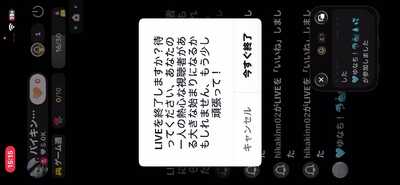 15:15
バイキン…
5.0K
0
ゲーム道
0/10
1
16のう
LIVEを終了しますか？待
ってください、あなたの
一人の熱心な視聴者があ
る大きな始まりになるか
もしれません、もう少し
頑張って！
キャンセル
今すぐ終了
hikakinn02がLIVEを「いいね」しまし
た
hikakinn02がLIVEを「いいね」しまし
た
ゆなち！
した
ゆなち！
が参加しました